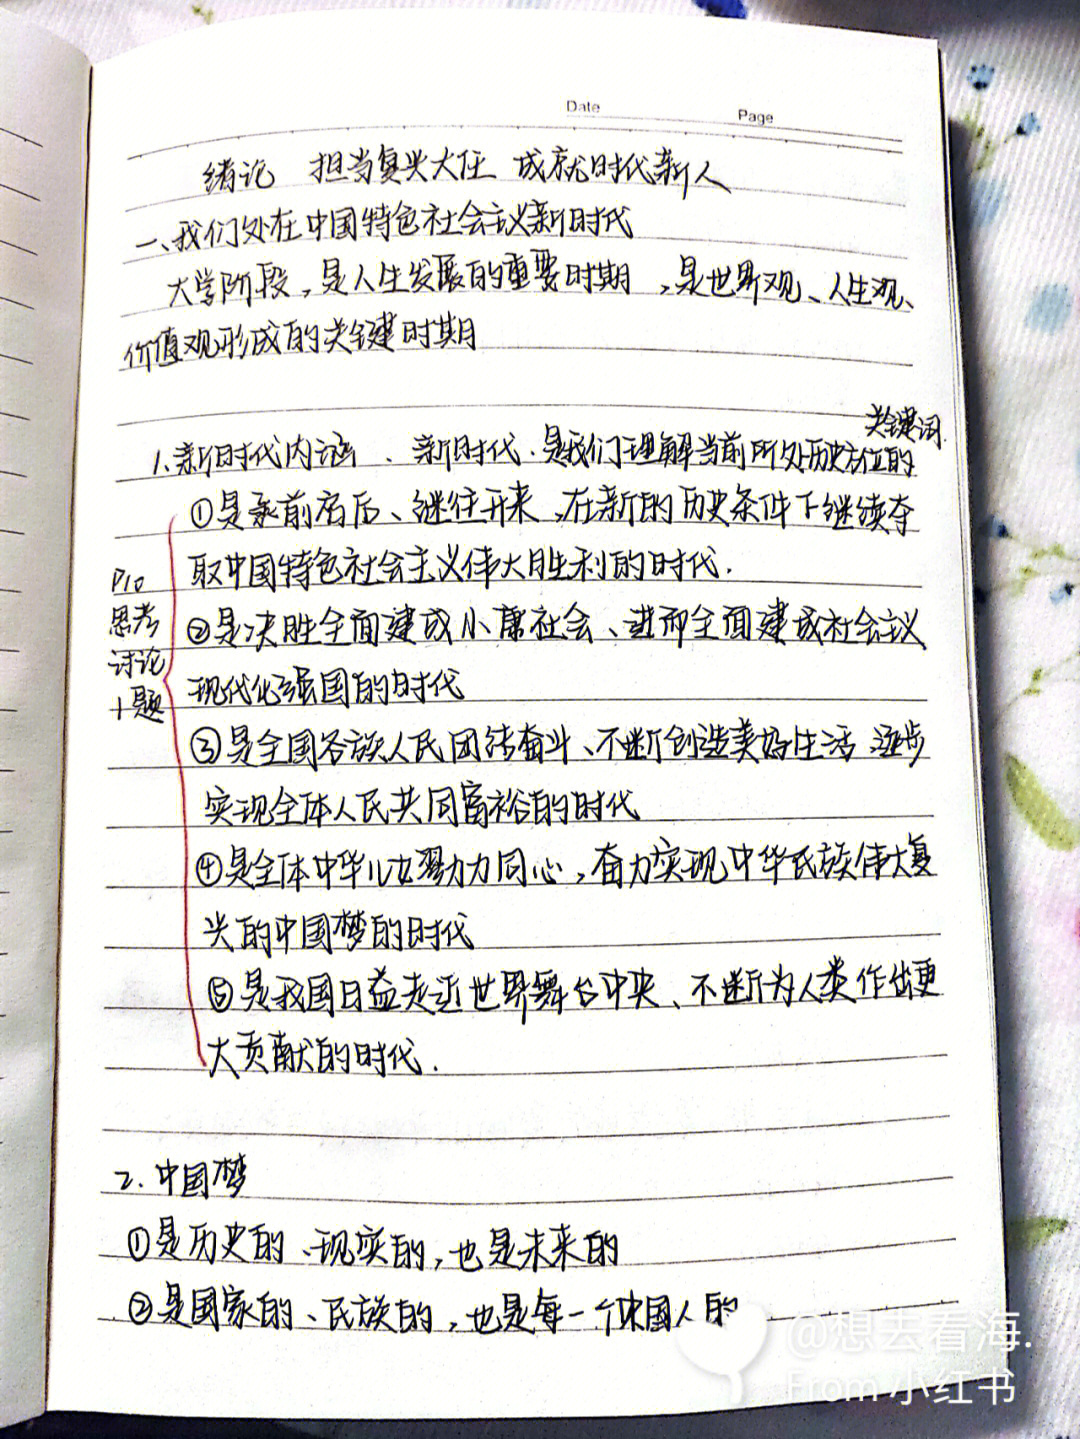 Date
Page
绪论 担当复兴大任 成就时代新人
一、我们处在中国特色社会主义新时代
大学阶段，是人生发展的重要时期，是世界观、人生观、
价值观形成的关键时期
关键词.
1.新时代内涵、新时代.是我们理解当前所处历史方位的
①是承前启后、继往开来，在新的历史条件下继续夺
取中国特色社会主义伟大胜利的时代.
②是决胜全面建成小康社会、进而全面建成社会主义
现代化强国的时代
③是全国各族人民团结奋斗、不断创造美好生活 逐步
实现全体人民共同富裕的时代
④是全体中华儿女勠力同心，奋力实现中华民族伟大复
兴的中国梦的时代
⑤是我国日益走近世界舞台中央、不断为人类作出更
大贡献的时代.
P10
思考
讨论
1题
2.中国梦
①是历史的、现实的，也是未来的
②是国家的、民族的，也是每一个中国人的
@想去看海.
From 小红书